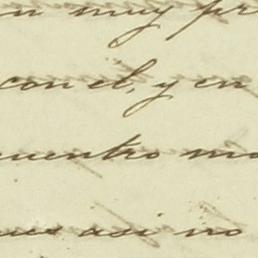 muy
con el, y en
uentro
asi no